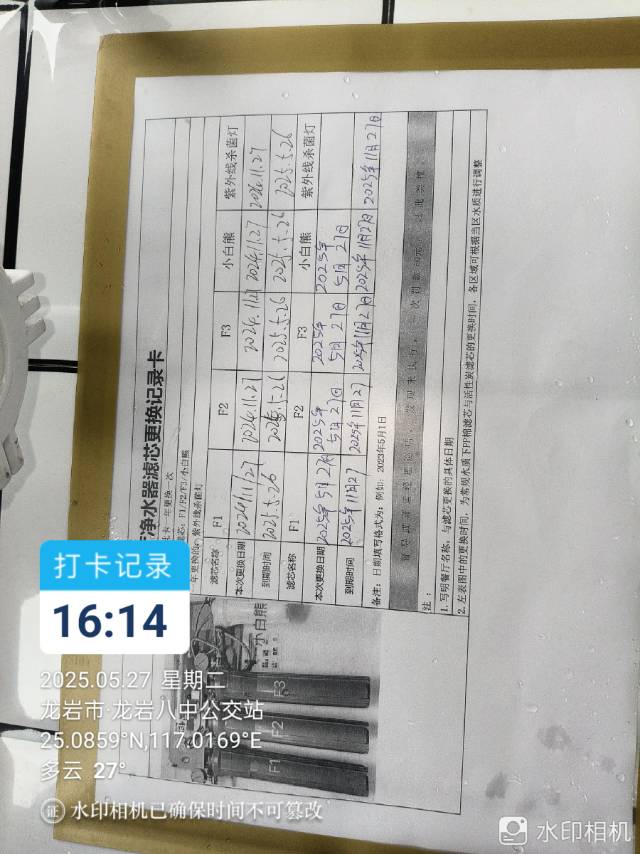 净水器滤芯更换记录卡
年更换一次
F1/F2/F3/小白熊
紫外线杀菌灯
滤芯名称 F1 F2 F3 小白熊 紫外线杀菌灯
本次更换日期 2024.11.27 2024.11.27 2024.11.27 2024.11.27 2024.11.27
到期时间 2025.5.26 2025.5.26 2025.5.26 2025.5.26 2025.5.26
滤芯名称 F1 F2 F3 小白熊 紫外线杀菌灯
本次更换日期 2025年5月27日 2025年5月27日 2025年5月27日 2025年5月27日
到期时间 2025年11月27 2025年11月27 2025年11月27日 2025年11月27日 2025年11月27日
备注：日期填写格式为：例如：2023年5月1日
注：
1.写明餐厅名称，与滤芯更换的具体日期
2.左表图中的更换时间，为常规水质下PP棉滤芯与活性炭滤芯的更换时间，各区域可根据当区水质进行调整
小白熊
F3
F2
F1
打卡记录
16:14
2025.05.27 星期二
龙岩市·龙岩八中公交站
25.0859°N,117.0169°E
多云 27°
证 水印相机已确保时间不可篡改
水印相机